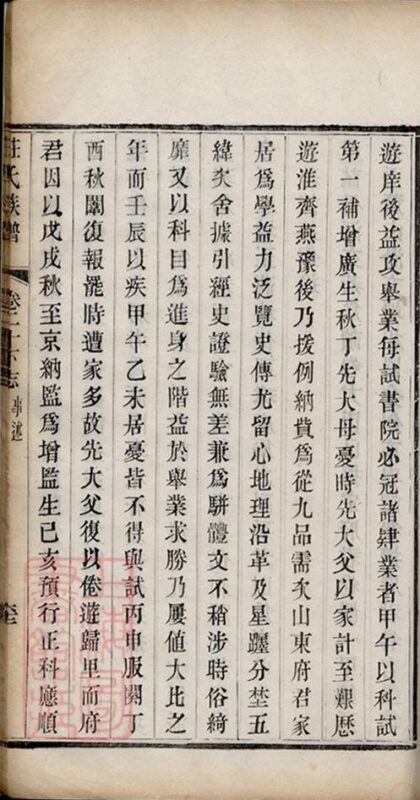 遊庠後益攻舉業每試書院必冠諸肄業者甲午以科試
第一補增廣生秋丁先大母憂時先大父以家計至艱歷
遊淮齊燕豫後乃援例納貲為從九品需次山東府君家
居爲學益力泛覽史傳尤留心地理沿革及星躔分埜五
緯次舍據引經史證驗無差兼爲騈體文不稍涉時俗綺
靡又以科目爲進身之階益於舉業求勝乃屢値大比之
年而壬辰以疾甲午乙未居憂皆不得與試丙申服闋丁
酉秋闈復報罷時遭家多故先大父復以倦遊歸里而府
君因以戊戌秋至京納監爲增監生己亥預行正科應順
莊氏族譜
卷二十下志
事述